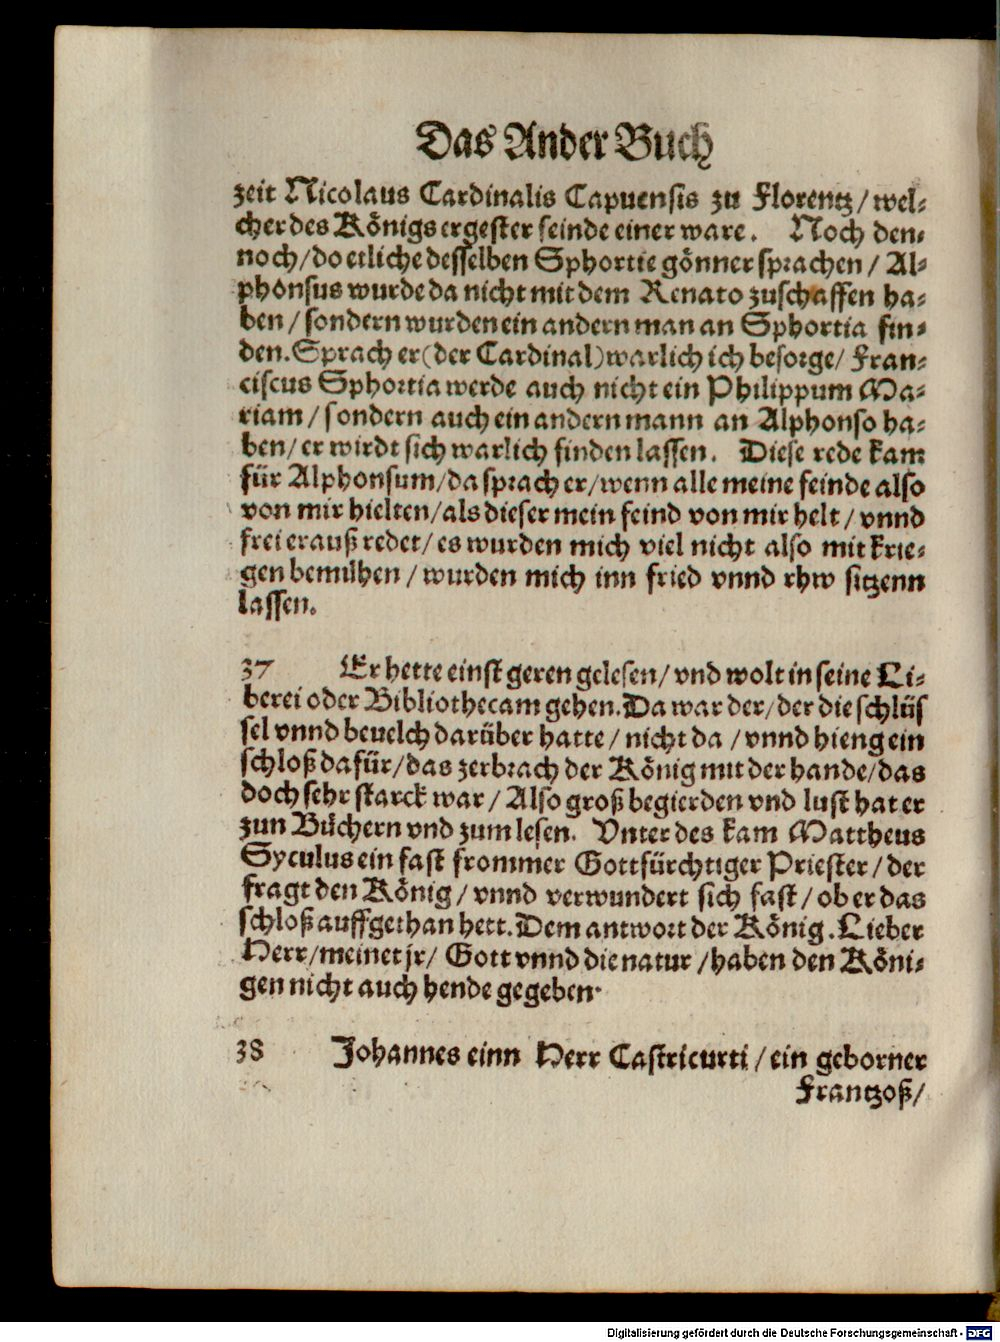 Das Ander Buch
zeit Nicolaus Cardinalis Capuensis zu Florentz / wel-
cher des Königs ergester feinde einer ware. Noch den-
noch / do etliche desselben Sphortie gönner sprachen / Al-
phonsus wurde da nicht mit dem Renato zuschaffen ha-
ben / sondern wurden ein andern man an Sphortia fin-
den. Sprach er (der Cardinal) warlich ich besorge / Fran-
ciscus Sphortia werde auch nicht ein Philippum Ma-
riam / sondern auch ein andern mann an Alphonso ha-
ben / er wirdt sich warlich finden lassen. Diese rede kam
für Alphonsum / da sprach er / wenn alle meine feinde also
von mir hielten / als dieser mein feind von mir helt / vnnd
frei erauß redet / es wurden mich viel nicht also mit krie-
gen bemühen / wurden mich inn fried vnnd rhw sitzenn
lassen.
37 Er hette einst geren gelesen / vnd wolt in seine Li-
berei oder Bibliothecam gehen. Da war der / der die schlüs
sel vnnd beuelch darüber hatte / nicht da / vnnd hieng ein
schloß dafür / das zerbrach der König mit der hande / das
doch sehr starck war / Also groß begierden vnd lust hat er
zun Büchern vnd zum lesen. Vnter des kam Mattheus
Syculus ein fast frommer Gottfürchtiger Priester / der
fragt den König / vnnd verwundert sich fast / ob er das
schloß auffgethan hett. Dem antwort der König. Lieber
Herr / meinet jr / Gott vnnd die natur / haben den Köni-
gen nicht auch hende gegeben.
38 Johannes einn Herr Castricurti / ein geborner
Frantzoß /
Digitalisierung gefördert durch die Deutsche Forschungsgemeinschaft - DFG